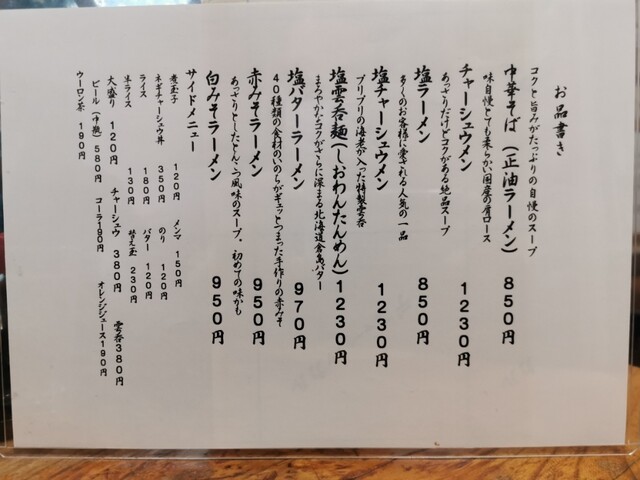 お品書き
コクと旨みがたっぷりの自慢のスープ
中華そば（正油ラーメン）850円
味自慢とても柔らかい国産の肩ロース
チャーシュウメン 1230円
あっさりだけどコクがある絶品スープ
塩ラーメン 850円
多くのお客様に愛される人気の一品
塩チャーシュウメン 1230円
プリプリの海老が入った特製雲呑
塩雲呑麺（しおわんたんめん）1230円
まろやかなコクがさらに深まる北海道倉島バター
塩バターラーメン 970円
40種類の食材のいのちがギュッとつまった手作りの赤みそ
赤みそラーメン 950円
あっさりとしたとんこつ風味のスープ。初めての味かも
白みそラーメン 950円
サイドメニュー
煮玉子 120円 メンマ 150円
ネギチャーシュウ丼 350円 のり 120円
ライス 180円 バター 120円
半ライス 130円 替え玉 230円
大盛り 120円 チャーシュウ 380円 雲呑 380円
ビール（中瓶）580円 コーラ190円 オレンジジュース190円
ウーロン茶 190円